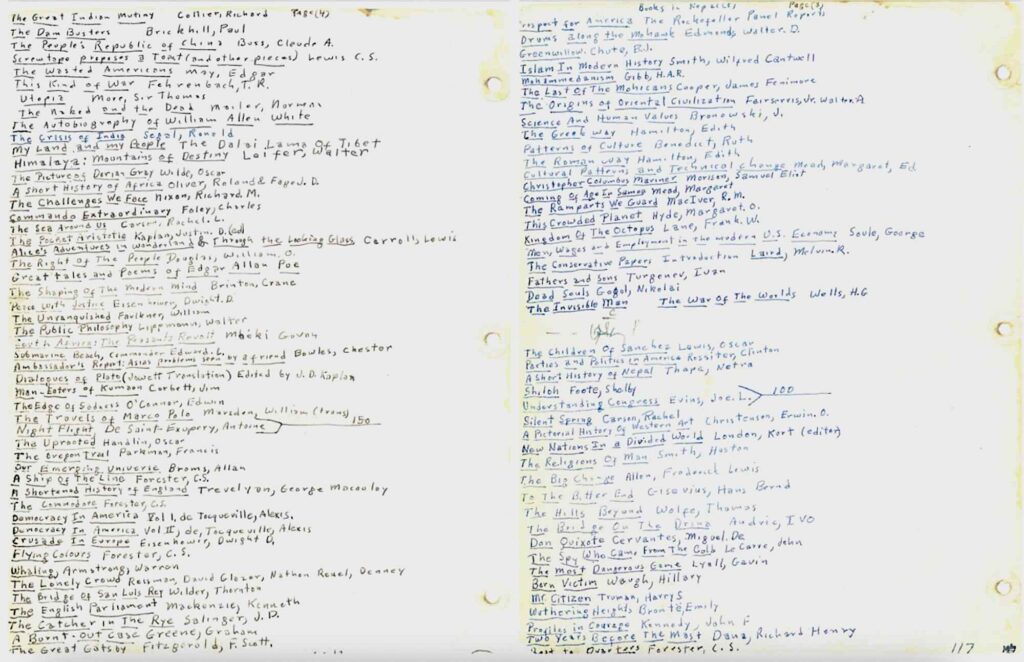 The Great Indian Mutiny Collier, Richard Page (4)
The Dam Busters Brickhill, Paul
The People's Republic of China Buss, Claude A.
Screwtape proposes a Toast (and other pieces) Lewis C.S.
The Wasted Americans May, Edgar
This Kind of War Fehrenbach, T.R.
Utopia More, Sir Thomas
The Naked and the Dead Mailer, Norman
The Autobiography of William Allen White
The Crisis of India Segal, Ronald
My Land and my People The Dalai Lama Of Tibet
Himalaya: Mountains of Destiny Loifer, Walter
The Picture of Dorian Gray Wilde, Oscar
A Short History of Africa Oliver, Roland & Fage J.D.
The Challenges We Face Nixon, Richard M.
Commando Extraordinary Foley, Charles
The Sea Around Us Carson, Rachel. L.
The Pocket Aristotle Kaplan, Justin. D. (ed)
Alice's Adventures in Wonderland & Through the Looking Glass Carroll, Lewis
The Right of The People Douglas, William, O.
Great tales and Poems of Edgar Allan Poe
The Shaping Of The Modern Mind Brinton, Crane
Peace With Justice Eisenhower, Dwight. D
The Unvanquished Faulkner, William
The Public Philosophy Lippmann, Walter
South Africa: The Peasants Revolt Mbeki Govan
Submarine Beach, Commander Edward. L.
Ambassador's Report: Asias problems seen by a friend Bowles, Chester
Dialogues of Plato (Jowett Translation) Edited by J.D. Kaplan
Man-Eaters of Kumaon Corbett, Jim
The Edge Of Sadness O'Connor, Edwin
The Travels of Marco Polo Marsden, William (trans)
Night Flight De Saint-Exupery, Antoine 150
The Uprooted Handlin, Oscar
The Oregon Trail Parkman, Francis
Our Emerging Universe Broms, Allan
A Ship Of The Line Forester, C.S.
A Shortened History of England Trevelyan, George Macauloy
The Commodore Forester, C.S.
Democracy In America Vol I, de Tocqueville, Alexis.
Democracy In America Vol II, de, Tocqueville, Alexis
Crusade In Europe Eisenhower, Dwight D,
Flying Colours Forester, C. S.
Whaling, Armstrong, Warren
The Lonely Crowd Reisman, David Glazer, Nathan Reuel, Denney
The Bridge Of San Luis Rey Wilder, Thornton
The English Parliament Mackenzie, Kenneth
The Catcher In The Rye Salinger, J.D.
A Burnt-Out Case Greene, Graham
The Great Gatsby Fitzgerald, F. Scott.
Books in Page (3)
Prospect for America The Rockefeller Panel Reports
Drums along the Mohawk Edmonds, Walter. D.
Greenwillow Chute, B.J.
Islam In Modern History Smith, Wilfred Cantwell
Mohammedanism Gibb, H.A.R.
The Last Of The Mohicans Cooper, James Fenimore
The Origins of Oriental Civilization Fairservis, Jr. Walter. A
Science And Human Values Bronowski, J.
The Greek Way Hamilton, Edith
Patterns of Culture Benedict, Ruth
The Roman way Hamilton, Edith
Cultural Patterns and Technical Change Mead, Margaret, Ed
Christopher Columbus Mariner Morison, Samuel Eliot
Coming Of Age In Samoa Mead, Margaret
The Ramparts We Guard MacIver, R. M.
This Crowded Planet Hyde, Margaret. O.
Kingdom Of The Octopus Lane, Frank. W.
Men, Wages and Employment in the modern U.S. Economy Soule, George
The Conservative Papers Introduction Laird, Melvin. R.
Fathers and Sons Turgenev, Ivan
Dead Souls Gogol, Nikolai
The Invisible Man The War Of The Worlds Wells, H.G
The Children Of Sanchez Lewis, Oscar
Parties and Politics in America Rossiter, Clinton
A Short History of Nepal Thapa, Netra
Shiloh Foote, Shelby
Understanding Congress Evins, Joe. L. 100
Silent Spring Carson, Rachel
A Pictorial History Of Western Art Christensen, Erwin. O.
New Nations In a Divided World London, Kurt (editor)
The Religions Of Man Smith, Huston
The Big Change Allen, Frederick Lewis
To The Bitter End Gisevius, Hans Bernd
The Hills Beyond Wolfe, Thomas
The Bridge On The Drina Andric, IVO
Don Quixote Cervantes, Miguel. De
The Spy Who Came From The Cold Le Carre, John
The Most Dangerous Game Lyall, Gavin
Born Victim Waugh, Hillary
Mr Citizen Truman, Harry S
Wuthering Heights Brontë, Emily
Profiles in Courage Kennedy, John F
Two Years Before The Mast Dana, Richard Henry
to Quarters Forester, C.S.
117